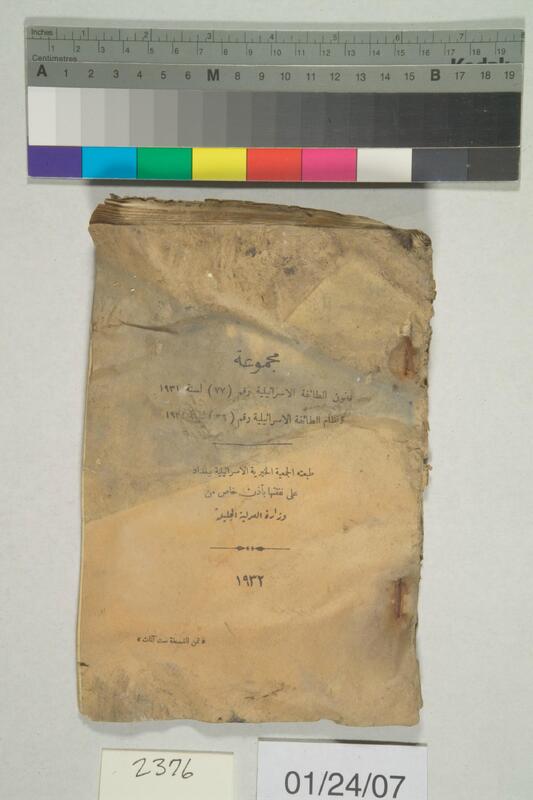 Inches 1 2 3 4 5 6 7
1 2 3 4 5 6 7 8 9 10 11 12 13 14 15 16 17 18 19
Centimetres
Kodak
A 1 2 3 4 5 6 M 8 9 10 11 12 13 14 15 B 17 18 19
مجموعة
قانون الطائفة الاسرائيلية رقم (٧٧) لسنة ١٩٣١
ونظام الطائفة الاسرائيلية رقم (٣٦)
طبعته الجمعية الخيرية الاسرائيلية ببغداد
على نفقتها بأذن خاص من
وزارة العدلية الجليلة
١٩٣٢
« ثمن النسخة ست آنات »
2376
01/24/07